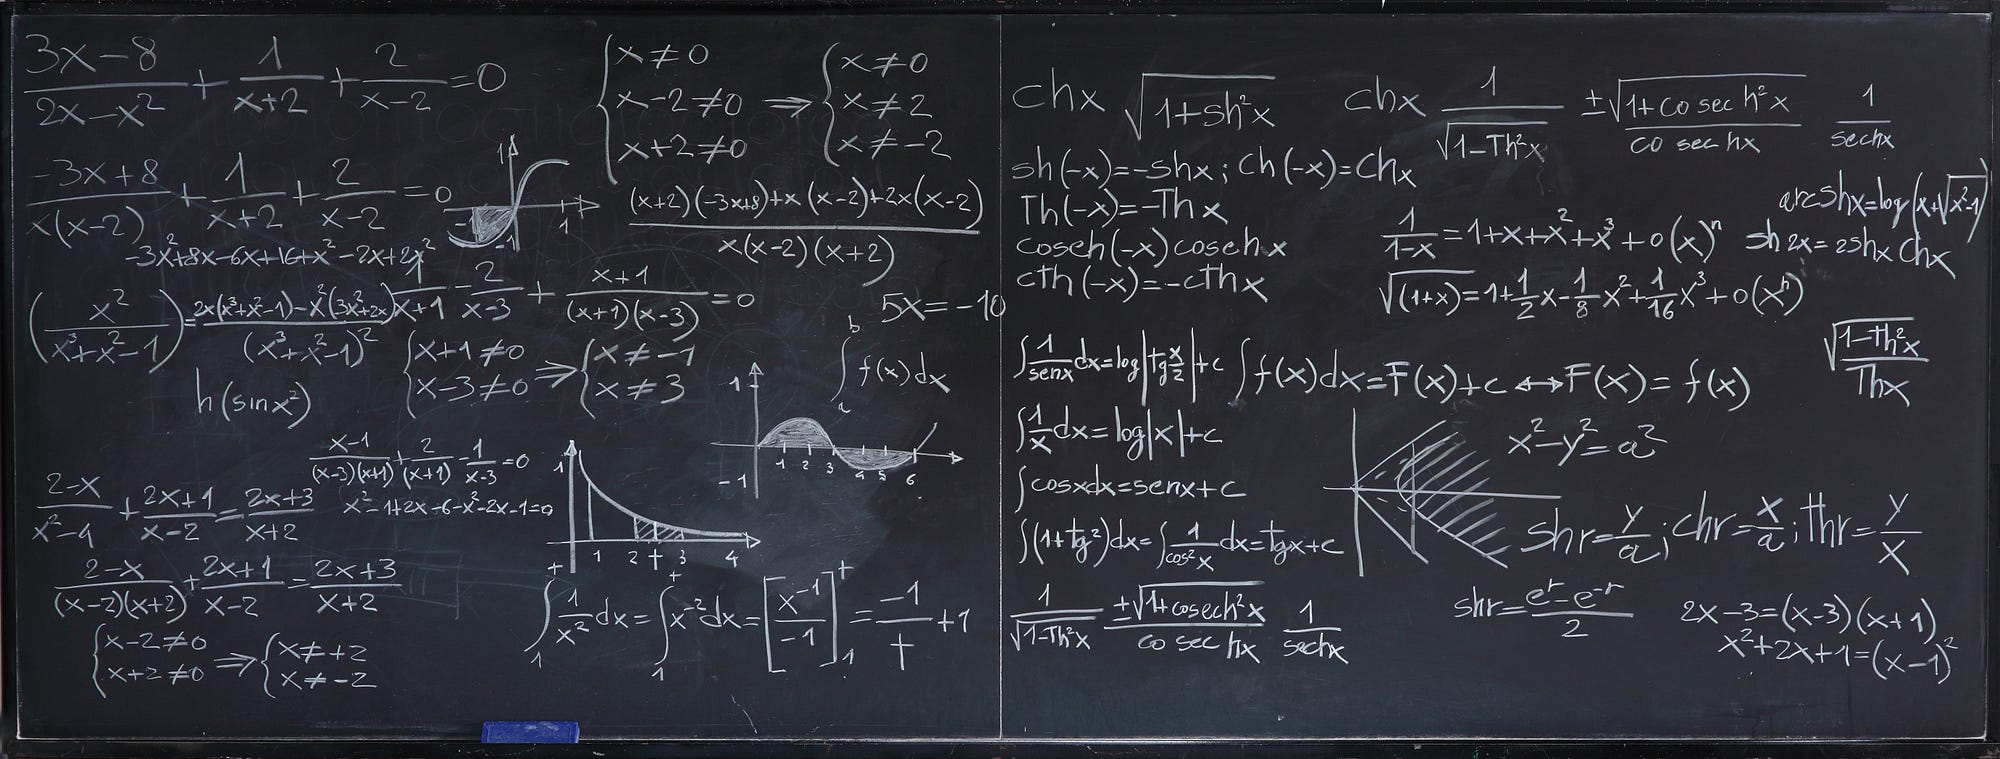 (3x-8)/(2x-x²) + 1/(x+2) + 2/(x-2) = 0
{ x≠0
x-2≠0
x+2≠0
⇒ { x≠0
x≠2
x≠-2
(-3x+8)/(x(x-2)) + 1/(x+2) + 2/(x-2) = 0
1
-1
1
((x+2)(-3x+8)+x(x-2)+2x(x-2))/(x(x-2)(x+2))
-3x²+8x-6x+16+x²-2x+2x²
(x²/(x³+x²-1)) = (2x(x³+x²-1)-x²(3x²+2x))/(x³+x²-1)²
1/(x+1) - 2/(x-3) + (x+1)/((x+1)(x-3)) = 0
5x=-10
{ x+1≠0
x-3≠0
⇒ { x≠-1
x≠3
∫ₐᵇ f(x)dx
h(sinx²)
1
-1
1 2 3 4 5 6
(x-1)/((x-3)(x+1)) + 2/(x+1) - 1/(x-3) = 0
x²-1+2x-6-x²-2x-1=0
(2-x)/(x²-4) + (2x+1)/(x-2) = (2x+3)/(x+2)
1
1 2 t 3 4
(2-x)/((x-2)(x+2)) + (2x+1)/(x-2) = (2x+3)/(x+2)
{ x-2≠0
x+2≠0
⇒ { x≠+2
x≠-2
∫₁ᵗ 1/x² dx = ∫₁ᵗ x⁻²dx = [x⁻¹/-1]₁ᵗ = -1/t + 1
chx √(1+sh²x)
chx 1/√(1-Th²x) ±√(1+cosech²x)/cosechx 1/sechx
sh(-x)=-shx; ch(-x)=chx
Th(-x)=-Thx
cosech(-x)cosechx
cth(-x)=-cthx
arcshx=log(x+√(x²-1))
1/(1-x)=1+x+x²+x³+o(x)ⁿ
sh2x=2shx chx
√(1+x)=1+1/2 x-1/8 x²+1/16 x³+o(xⁿ)
∫ 1/senx dx=log|tg x/2|+c
∫f(x)dx=F(x)+c↔F(x)=f(x)
√(1-Th²x)/Thx
∫ 1/x dx=log|x|+c
x²-y²=a²
∫cosxdx=senx+c
∫(1+tg²)dx=∫ 1/cos²x dx=tgx+c
shr=y/a; chr=x/a; thr=y/x
1/√(1-Th²x) ±√(1+cosech²x)/cosechx 1/sechx
shr=(eʳ-e⁻ʳ)/2
2x-3=(x-3)(x+1)
x²+2x+1=(x-1)²